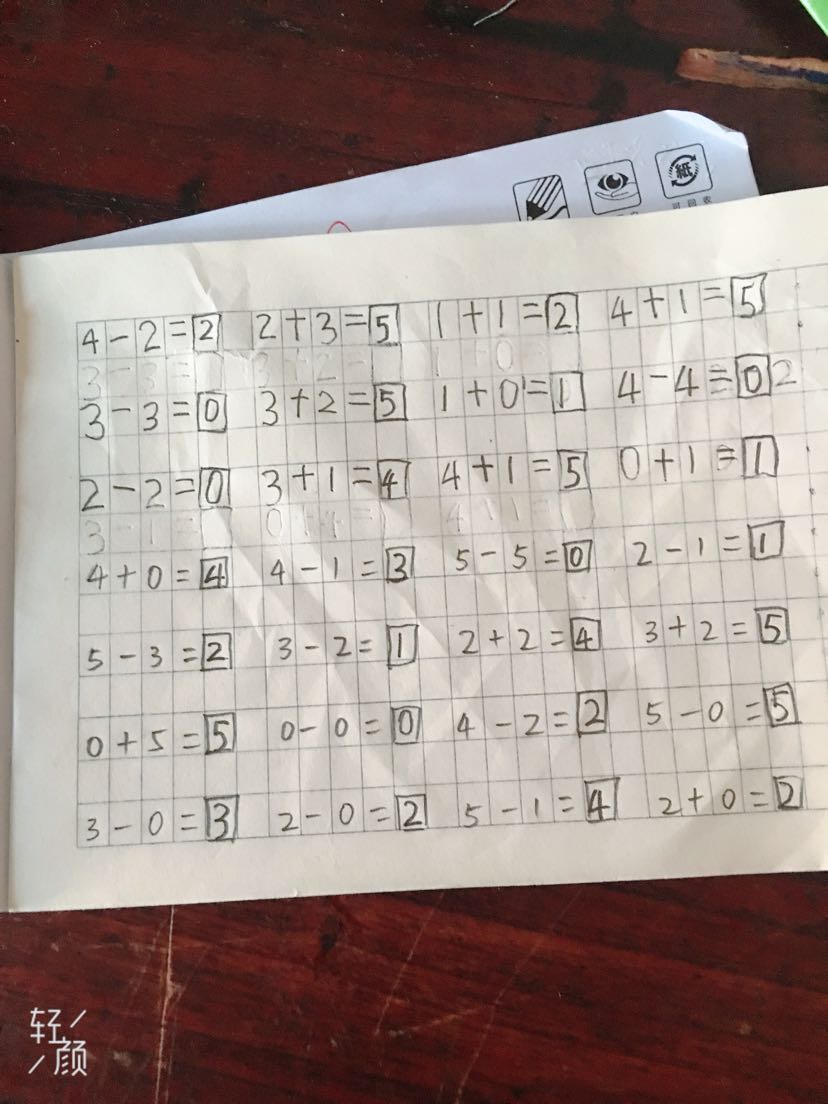 紙
可回收
4-2=2 2+3=5 1+1=2 4+1=5
3-3=0 3+2=5 1+0=1 4-4=0 2
2-2=0 3+1=4 4+1=5 0+1=1
4+0=4 4-1=3 5-5=0 2-1=1
5-3=2 3-2=1 2+2=4 3+2=5
0+5=5 0-0=0 4-2=2 5-0=5
3-0=3 2-0=2 5-1=4 2+0=2
轻
颜